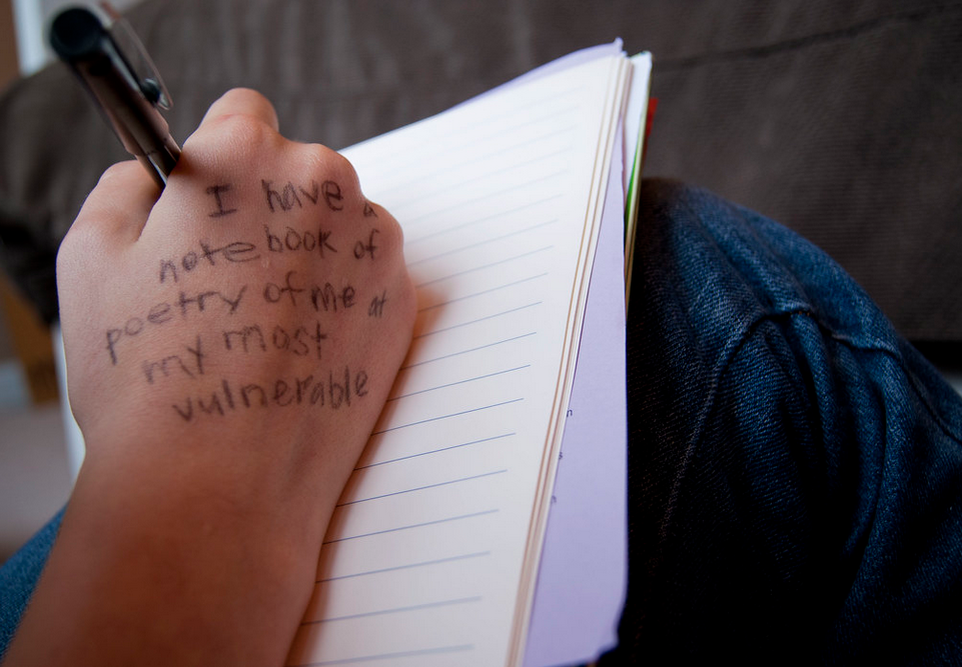 I have a
notebook of
poetry of me at
my most
vulnerable